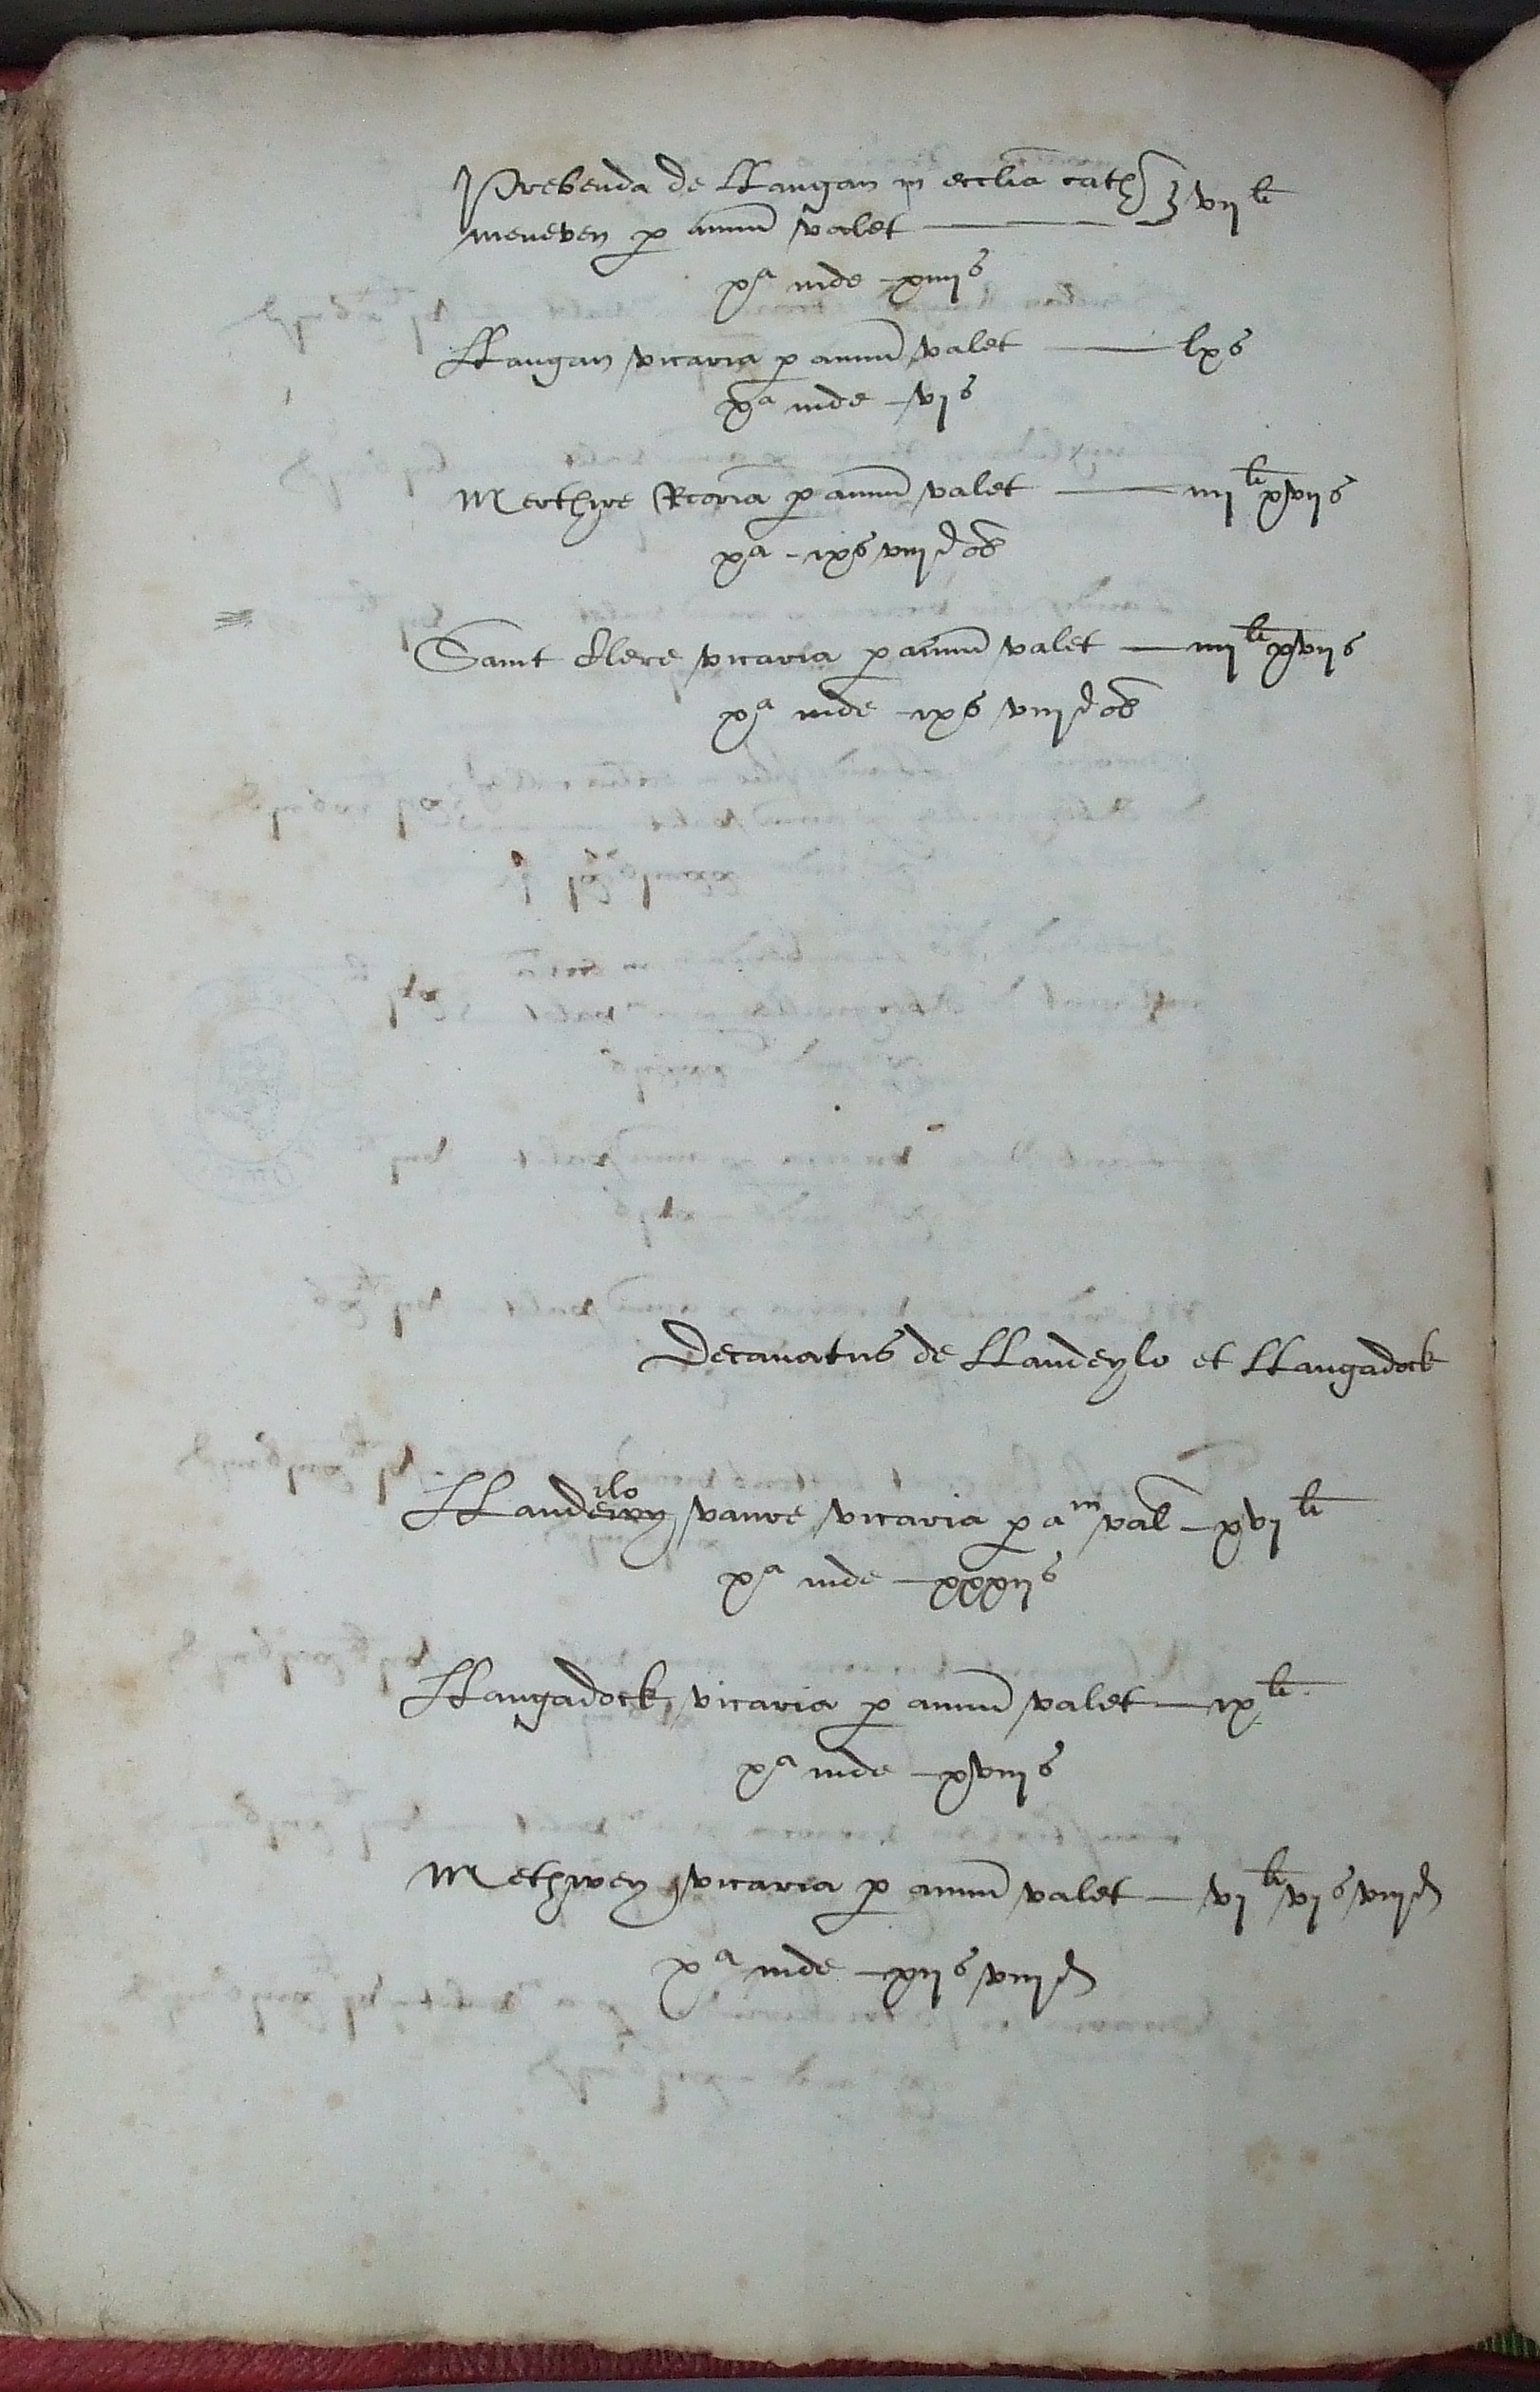 Prebenda de LLangan in ecclia cath vii li
meneven p annu valet
xa inde xiiii s
LLangan vicaria p annu valet lx s
xa inde vi s
Merthyre Rcoria p annu valet iiii li xvii s
xa ix s viii d ob
Saint Clere vicaria p annu valet iiii li xvii s
xa inde ix s viii d ob
Decanatus de LLandeylo et LLangadock
ilo
LLandewy vaure vicaria p am val xvi li
xa inde xxxii s
LLangadock vicaria p annu valet ix li
xa inde xviii s
Methwey vicaria p annu valet vi li vi s viii d
xa inde xii s viii d